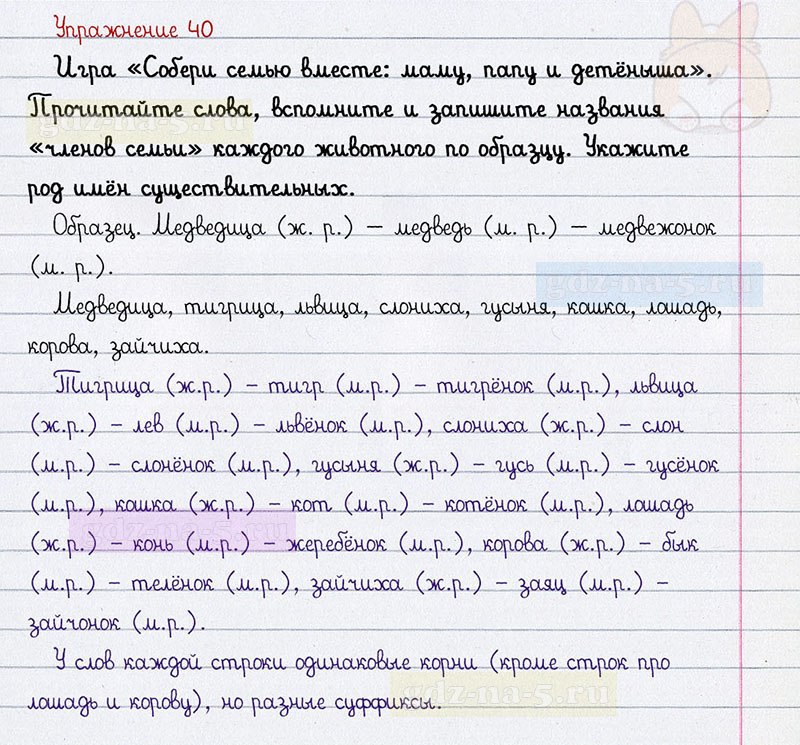 Упражнение 40
Игра «Собери семью вместе: маму, папу и детёныша».
Прочитайте слова, вспомните и запишите названия
«членов семьи» каждого животного по образцу. Укажите
род имён существительных.
Образец. Медведица (ж. р.) – медведь (м. р.) – медвежонок
(м. р.).
Медведица, тигрица, львица, слониха, гусыня, кошка, лошадь,
корова, зайчиха.
Тигрица (ж.р.) – тигр (м.р.) – тигрёнок (м.р.), львица
(ж.р.) – лев (м.р.) – львёнок (м.р.), слониха (ж.р.) – слон
(м.р.) – слонёнок (м.р.), гусыня (ж.р.) – гусь (м.р.) – гусёнок
(м.р.), кошка (ж.р.) – кот (м.р.) – котёнок (м.р.), лошадь
(ж.р.) – конь (м.р.) – жеребёнок (м.р.), корова (ж.р.) – бык
(м.р.) – телёнок (м.р.), зайчиха (ж.р.) – заяц (м.р.) –
зайчонок (м.р.).
У слов каждой строки одинаковые корни (кроме строк про
лошадь и корову), но разные суффиксы.
gdz-na-5.ru
gdz-na-5.ru
gdz-na-5.ru
gdz-na-5.ru